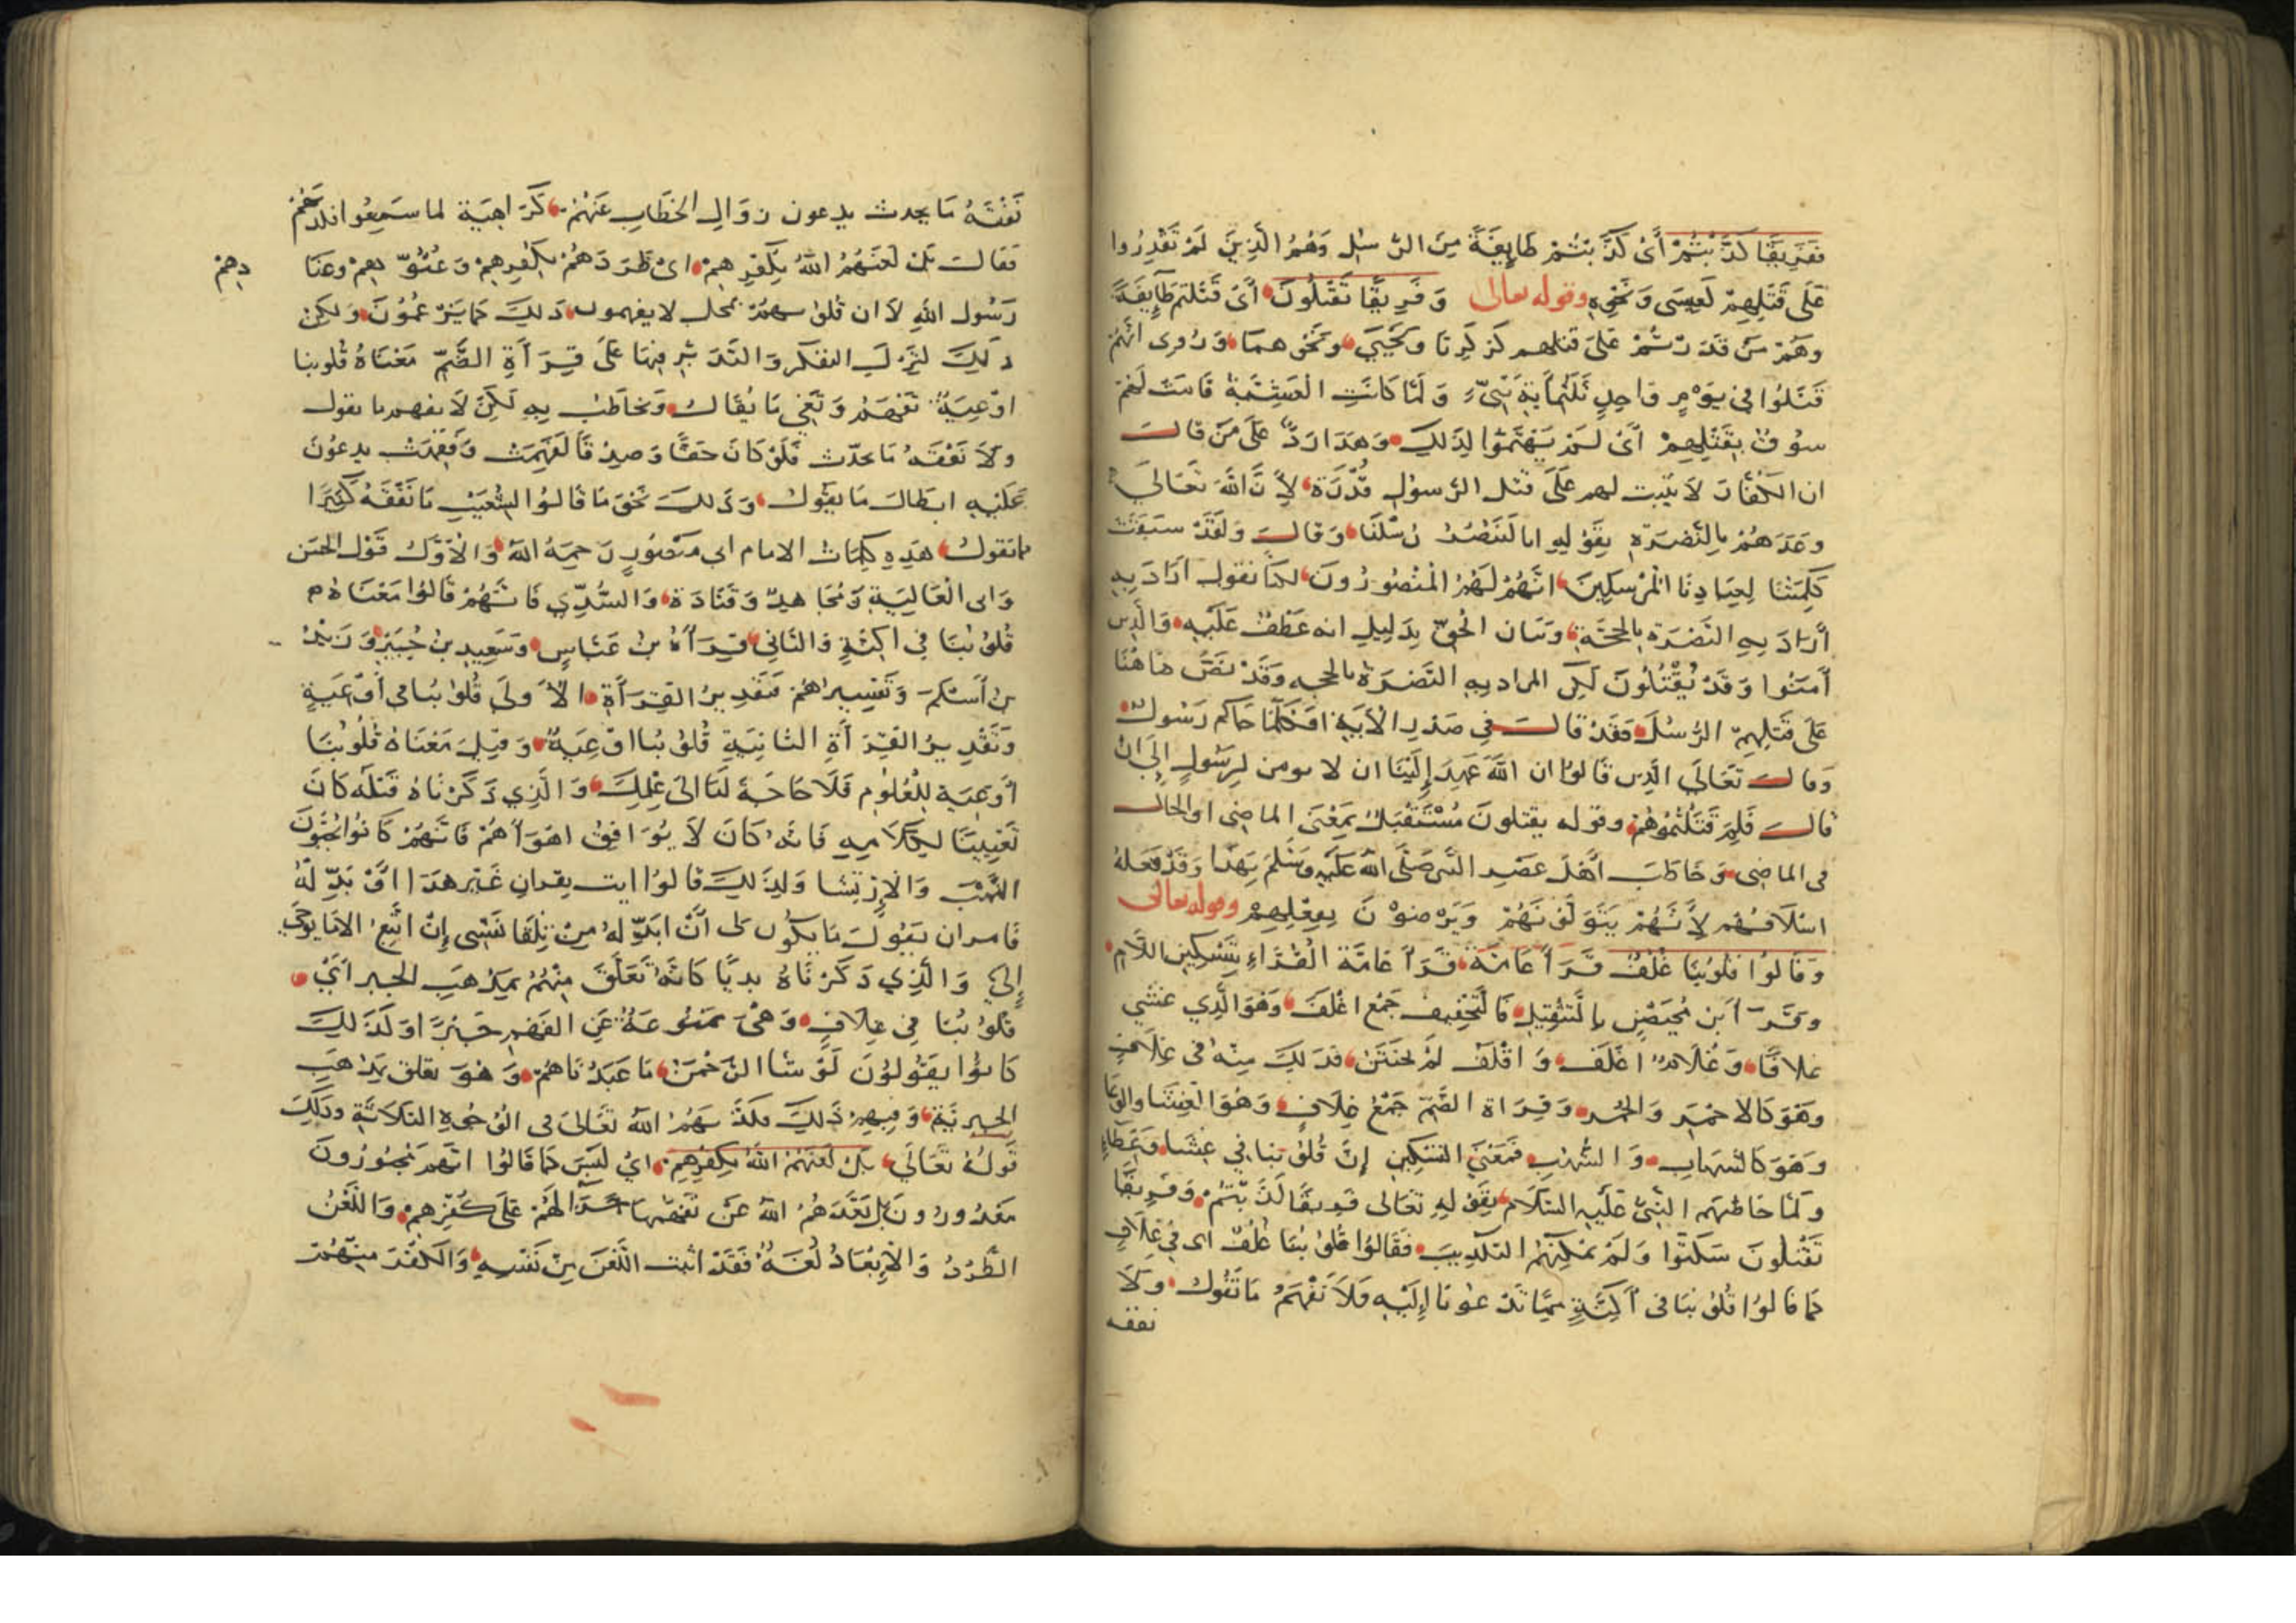 فَفَرِيقًا كَذَّبْتُمْ أَىْ كَذَّبْتُمْ طَايِفَةً مِنَ الرُّسُلِ وَهُمُ الَّذِينَ لَمْ تَقْدِرُوا
عَلَى قَتْلِهِمْ كَعِيسَى وَنَحْوِهِ وقوله تعالى وَفَرِيقًا تَقْتُلُونَ أَىْ قَتَلْتُمْ طَآيِفَةً
وَهُمْ مَنْ قَدَرْتُمْ عَلَى قتلهم كَزَكَرِيَّا وَيَحْيَى وَنَحْوِهِمَا وَرُوِىَ أَنَّهُمْ
قَتَلُوا فِى يَوْمٍ وَاحِدٍ ثَلَثَمِايَةِ نَبِىٍّ وَلَمَّا كَانَتِ الْعَشِيَّةُ قَامَتْ لَهُمْ
سُوقُ بَقْلِهِمْ أَىْ لَمْ يَهْتَمُّوا لِذَلِكَ وَهَذَا رَدٌّ عَلَى مَنْ قَالَ
ان الكُفَّارَ لَا يَثْبُت لهم عَلَى قَتْل الرَّسُول قُدْرَة لِأَنَّ اللَّهَ تَعَالَى
وَعَدَهُمْ بِالنُّصْرَةِ بِقَوْلِهِ انا لَنَنْصُرُ رُسُلَنَا وَقَالَ وَلَقَدْ سَبَقَتْ
كَلِمَتُنَا لِعِبَادِنَا الْمُرْسَلِينَ انَّهُمْ لَهُمُ الْمَنْصُورُونَ لكنا نقول اَرَادَ بِهِ
أَرَادَ بِهِ النُّصْرَة بِالْحُجَّةِ وَبَيَان الْحَقِّ بِدَلِيلِ انه عَطَفَ عَلَيْهِ وَالَّذِين
آمَنُوا وَقَدْ يُقْتَلُونَ لَكِن المراد بِهِ النُّصْرَة بالحجه وَقَدْ نَصَّ هَاهُنَا
عَلَى قَتْلِهِمُ الرُّسُلَ فَقَدْ قَالَ فِى صَدْرِ الْآيَةِ افَكُلَّمَا جَاكم رَسُول
وَقَالَ تَعَالَى الَّذِين قَالُوا ان اللَّهَ عَهِدَ إِلَيْنَا ان لا نومن لِرَسُولٍ إِلَى انْ
قَالَ فَلِمَ قَتَلْتُمُوهُمْ وقوله يقتلون مُسْتَقْبَل بِمَعْنَى الماضى او الحال
فى الماضى وَخَاطَبَ أَهْلَ عَصْرِ النَّبِى صَلَّى اللَّه عَلَيْهِ وَسَلَّمَ بِهَذَا وَقَدْ فَعَلَهُ
اسْلَافُهُمْ لِأَنَّهُمْ يَتَوَلَّوْنَهُمْ وَيَرْضَوْنَ بِفِعْلِهِمْ وقوله تعالى
وَقَالُوا قُلُوبُنَا غُلْفٌ قَرَأَ عَامَّة قَرَأَ عَامَّة الْقُرَّاءِ بِتَسْكِينِ اللَّامِ
وَقَرَأَ ابْن مُحَيْصِنٍ بِالتَّثْقِيلِ فَالتَّخْفِيف جَمْع اغْلَفَ وَهُوَ الَّذِي غُشِّيَ
غِلَافًا وَغُلَامٌ اغْلَف وَاقْلَف لَمْ يُخْتَتَنْ فَذَلِكَ مِنْهُ فى غِلَافٍ
وَهُوَ كَالاحْمَرِ وَالْحُمْرِ وَقِرَاة الضَّمِّ جَمْعُ غِلَافٍ وَهُوَ الْغِشَا وَالْوِعَا
وَهُوَ كَالشِّهَابِ وَالشُّهُبِ فَمَعْنَى التَّسْكِينِ إِنَّ قُلُوبَنَا فِي غِشَا وَغِطَاءٍ
وَلَمَّا خَاطَبَهُمُ النَّبِىُّ عَلَيْهِ السَّلَام بِقَوْلِهِ تَعَالَى فَفَرِيقًا كَذَّبْتُمْ وَفَرِيقًا
تَقْتُلُونَ سَكَتُوا وَلَمْ يُمْكِنْهُمُ التَّكْذِيبَ فَقَالُوا قُلُوبُنَا غُلْفٌ اى فِي غِلَافٍ
كَمَا قَالُوا قُلُوبُنَا فى أَكِنَّةٍ مِمَّا تَدْعُونَا إِلَيْهِ فَلَا نَفْهَمُ مَا تَقُول وَلَا
نفقه
نَفْقَهُ مَا يحدث يدعون زَوَال الخِطَابِ عَنْهُمْ كَرَاهِيَة لما سَمِعُوا
فَقَالَ بَلْ لَعَنَهُمُ اللَّهُ بِكُفْرِهِمْ اىْ طَرَدَهُمْ بِكُفْرِهِمْ وَعُتُوِّهِمْ وعنا
دهم
رَسُول اللهِ لَا ان قُلُوبهُمْ بمحل لا يفهمون ذَلِكَ كَمَا يَزْعُمُونَ وَلَكِنْ
ذَلِكَ لِتَرْكِ التفكر وَالتَّدَبُّرِ فِيهَا عَلَى قِرَآةِ الضَّمِّ مَعْنَاهُ قُلُوبنا
اوْعِيَةٌ تَفْهَمُ وَتَعِي مَا يُقَال وَيخاطَبُ بِهِ لَكِنْ لَا نفهم ما يقول
وَلَا نَفْقَهُ مَا يحدّث فَلَوْ كَانَ حَقًّا وَصِدْقًا لَفَهِمَتْ وَفَقِهَتْ يدعُونَ
عَلَيْهِ ابطَال مَا يقول وَذَلِكَ نَحْو مَا قَالُوا لِشُعَيْبٍ مَا نَفْقَهُ كَثِيرًا
مما تقول هَذِهِ كَلِمَات الامام ابى مَنْصُورٍ رَحِمَهُ اللَّهُ وَالْأَوَّل قَوْل الحسَن
وَابى الْعَالِيَةِ وَمُجَاهِدٌ وَقَتَادَة وَالسُّدِّي فَانَّهُمْ قَالُوا مَعْنَاهُ
قُلُوبُنَا فِي اكِنَّةٍ وَالثَّانِي قِرَآةُ بْن عَبَّاسٍ وَسَعِيدِ بْن جُبَيْر وَزَيْد
بْن أَسْلَمَ وَتَفْسِيرُهُمْ فَتَقْدِيرُ القِرَآةِ الْأُولَى قُلُوبُنَا فى أَوْعِيَةٍ
وَتَقْدِيرُ القِرَآةِ الثَّانِيَةِ قُلُوبُنَا اوْعِيَةٌ وَقِيلَ مَعْنَاهُ قُلُوبُنَا
أَوْعِيَة لِلْعُلُومِ فَلَا حَاجَةَ لَنَا الَى عِلْمِكَ وَالَّذِي ذَكَرْنَاهُ قَبْلَهُ كَانَ
تَعْيِيبًا لِكَلَامِهِ فَانَّهُ كَانَ لَا يُوَافِقُ اهْوَآهُمْ فَانَّهُمْ كَانُوا يُحِبُّونَ
النَّهْبَ وَالْإِرْتِشَا وَلِذَلِكَ قَالُوا ايت بِقُرانٍ غَيْرِ هَذَا اوْ بَدِّلْهُ
فَامر ان يَقُولَ مَا يَكُون لى أَنْ ابَدِّلهُ مِنْ تِلْقَا نَفْسِى إِنْ اتَّبِعُ الا مَا يوحَى
إِلَيَّ وَالَّذِي ذَكَرْنَاهُ بديًّا كَانَهُ تَعَلَّقَ مِنْهُمْ بِمَذْهَبِ الجبر اىْ
قُلُوبُنَا فِي غِلَافٍ وَهْىَ مَمْنُوعَةٌ عَنِ الفَهْمِ جَبْرًا وَكَذَلِكَ
كَانُوا يَقُولُونَ لَوْ شَا الرَّحْمَنُ مَا عَبَدْنَاهُمْ وَهُوَ تعلق بمَذْهَبِ
الجبرِيَّةِ وَفِيهِ ذَلِكَ فَكَذَّبَهُمُ اللَّهُ تَعَالَى فى الْوُجُوهِ الثَّلَاثَةِ وَذَلِكَ
قَولُهُ تَعَالَى بَلْ لَعَنَهُمُ اللَّهُ بِكُفْرِهِمْ اىْ لَيْسَ كَمَا قَالُوا انَّهُمْ مَجْبُورُونَ
مَعْذُورُونَ بَلْ بَعَّدَهُمُ اللَّهُ عَنْ لَهُمْ عَلَى كُفْرِهِمْ وَاللَّعْنُ
الطَّرْدُ وَالْإِبْعَادُ لُغَةً فَقَدْ اثبت اللَّعْنَ مِنْ نَفْسِهِ وَالْكُفْرَ مِنْهُمْ